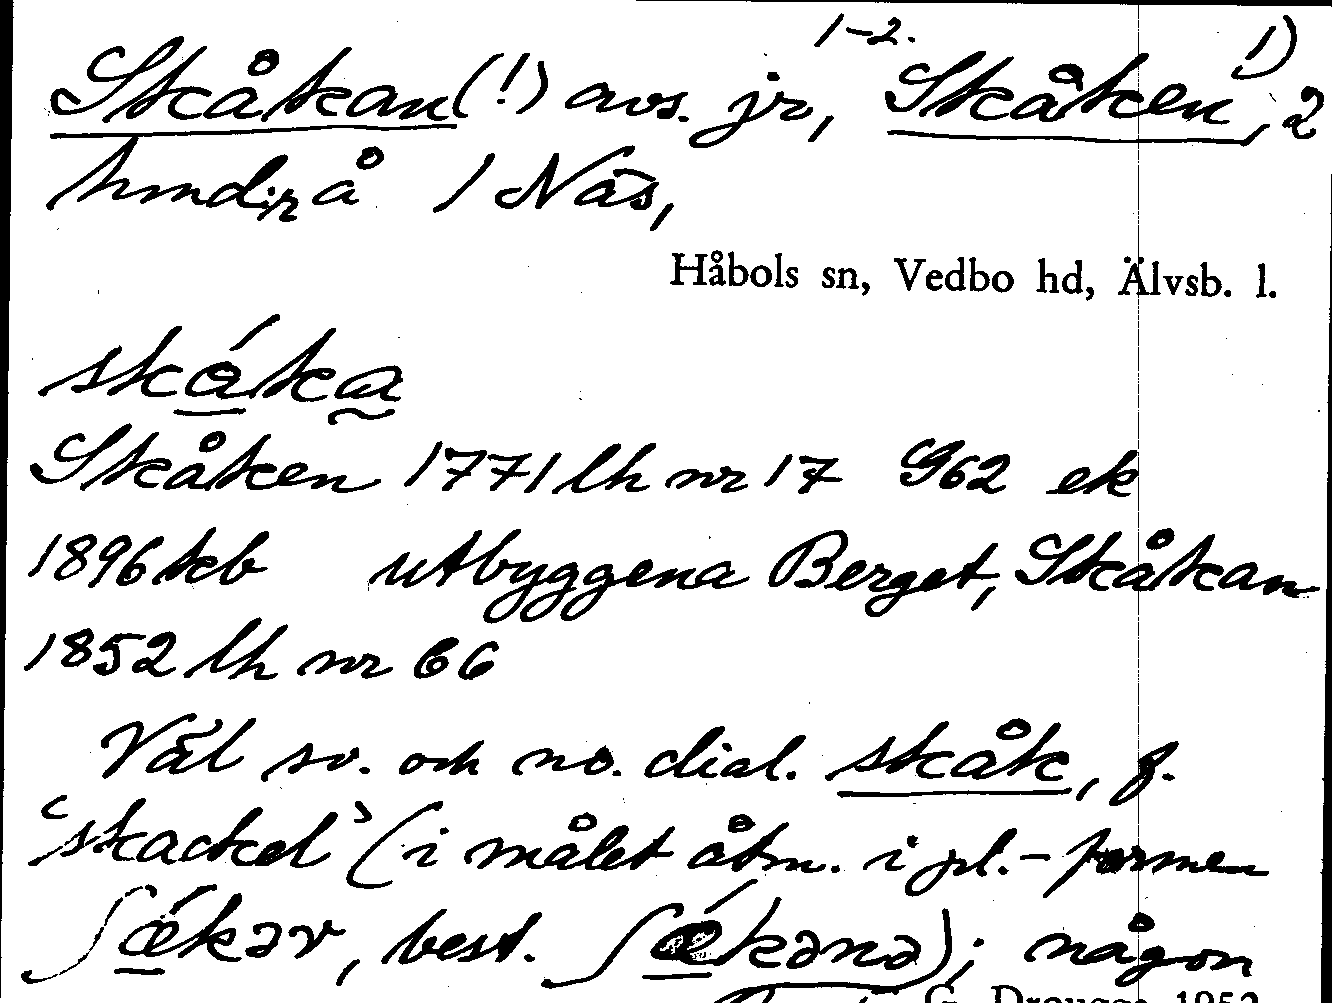 1-2. 1)
Skåkan(!) avs. jr, Skåken, 2
hmd; på 1 Näs,
Håbols sn, Vedbo hd, Älvsb. l.
skǻka
Skåken 1771 lh nr 17 G62 ek
1896 kb utbyggena Berget, Skåkan
1852 lh nr 66
Väl sv. och no. dial. skåk, f.
‘skackel’ (i målet åtm. i pl.-formen
ʃǽkər, best. ʃǽkənə); någon
G. Drougge 1952